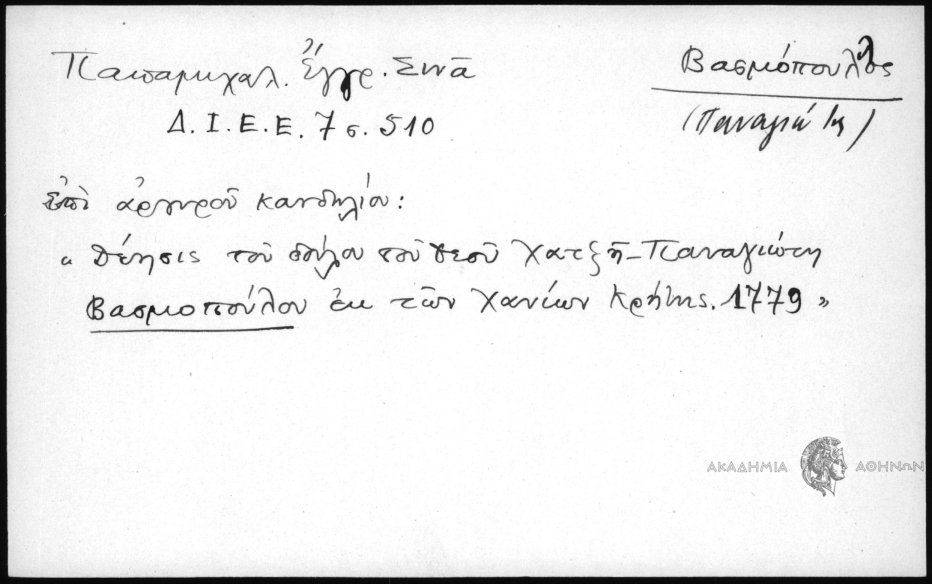 Παπαμιχαλ. Ἔγγρ. Σινᾶ
Δ. Ι. Ε. Ε. 7 σ. 510
Βασμιόπουλος
(Παναγιώτης)
ἐπὶ ἀργυροῦ κανδηλίου:
« Δέησις τοῦ δούλου τοῦ θεοῦ Χατζῆ-Παναγιώτη
Βασμιοπούλου ἐκ τῶν Χανίων Κρήτης. 1779 »
ΑΚΑΔΗΜΙΑ ΑΘΗΝΩΝ